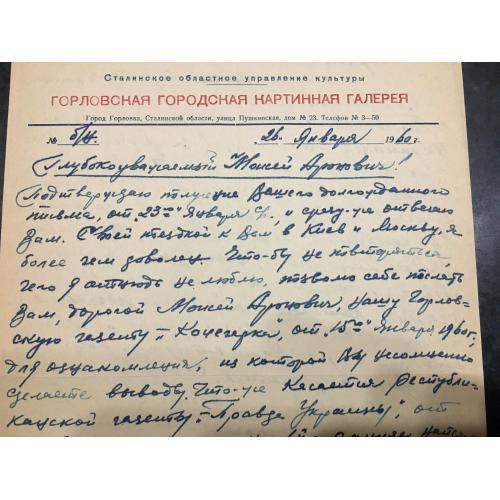 Сталинское областное управление культуры
ГОРЛОВСКАЯ ГОРОДСКАЯ КАРТИННАЯ ГАЛЕРЕЯ
Город Горловка, Сталинской области, улица Пушкинская, дом № 23. Телефон № 3—50
№ б/н. 26 Января 1960 г.
Глубокоуважаемый Моисей Аронович!
Подтверждаю получение Вашего долгожданного
письма, от 23го Января с/г, и сразу-же отвечаю
Вам. Своей поездкой к Вам в Киев и Москву, я
более чем доволен. Что-бы не повторяться,
чего я отнюдь не люблю, позволю себе послать
Вам, дорогой Моисей Аронович, нашу Горлов-
скую газету - "Кочегарка", от 15го Января 1960г.
для ознакомления, из которой Вы несомненно
сделаете выводы. Что-же касается Республи-
канской газеты - "Правда Украины", от